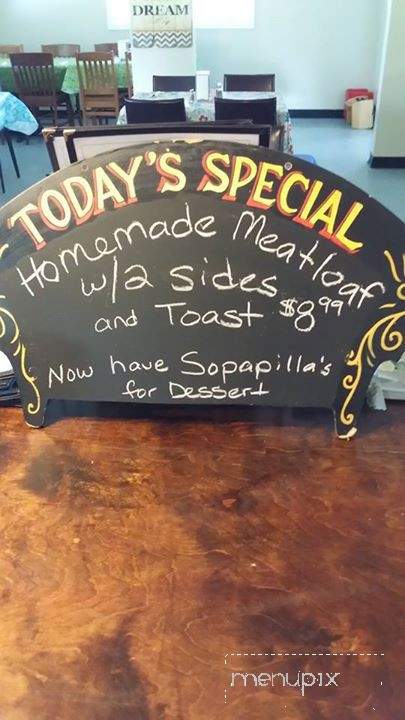 DREAM
TODAY'S SPECIAL
Homemade Meatloaf
w/2 sides
and Toast $8.99
Now have Sopapilla's
for Dessert
menupix